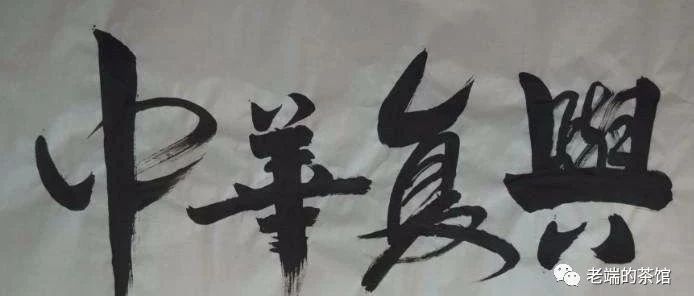 中華复興
老端的茶馆